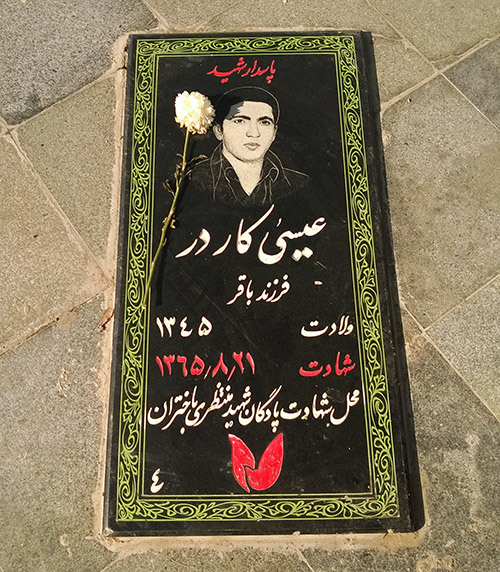 پاسدار شهید
عیسیٰ کاردر
فرزند باقر
ولادت ۱۳۴۵
شهادت ۱۳۶۵٫۸٫۲۱
محل شهادت پادگان شهید منتظری باختران
۴